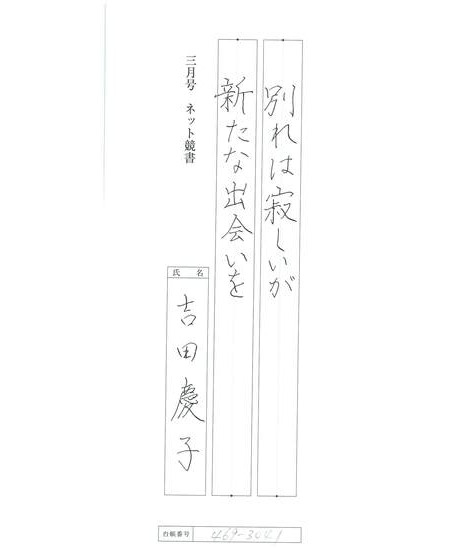 別れは寂しいが
新たな出会いを
三月号 ネット競書
氏名
吉田慶子
台帳番号
469-3041